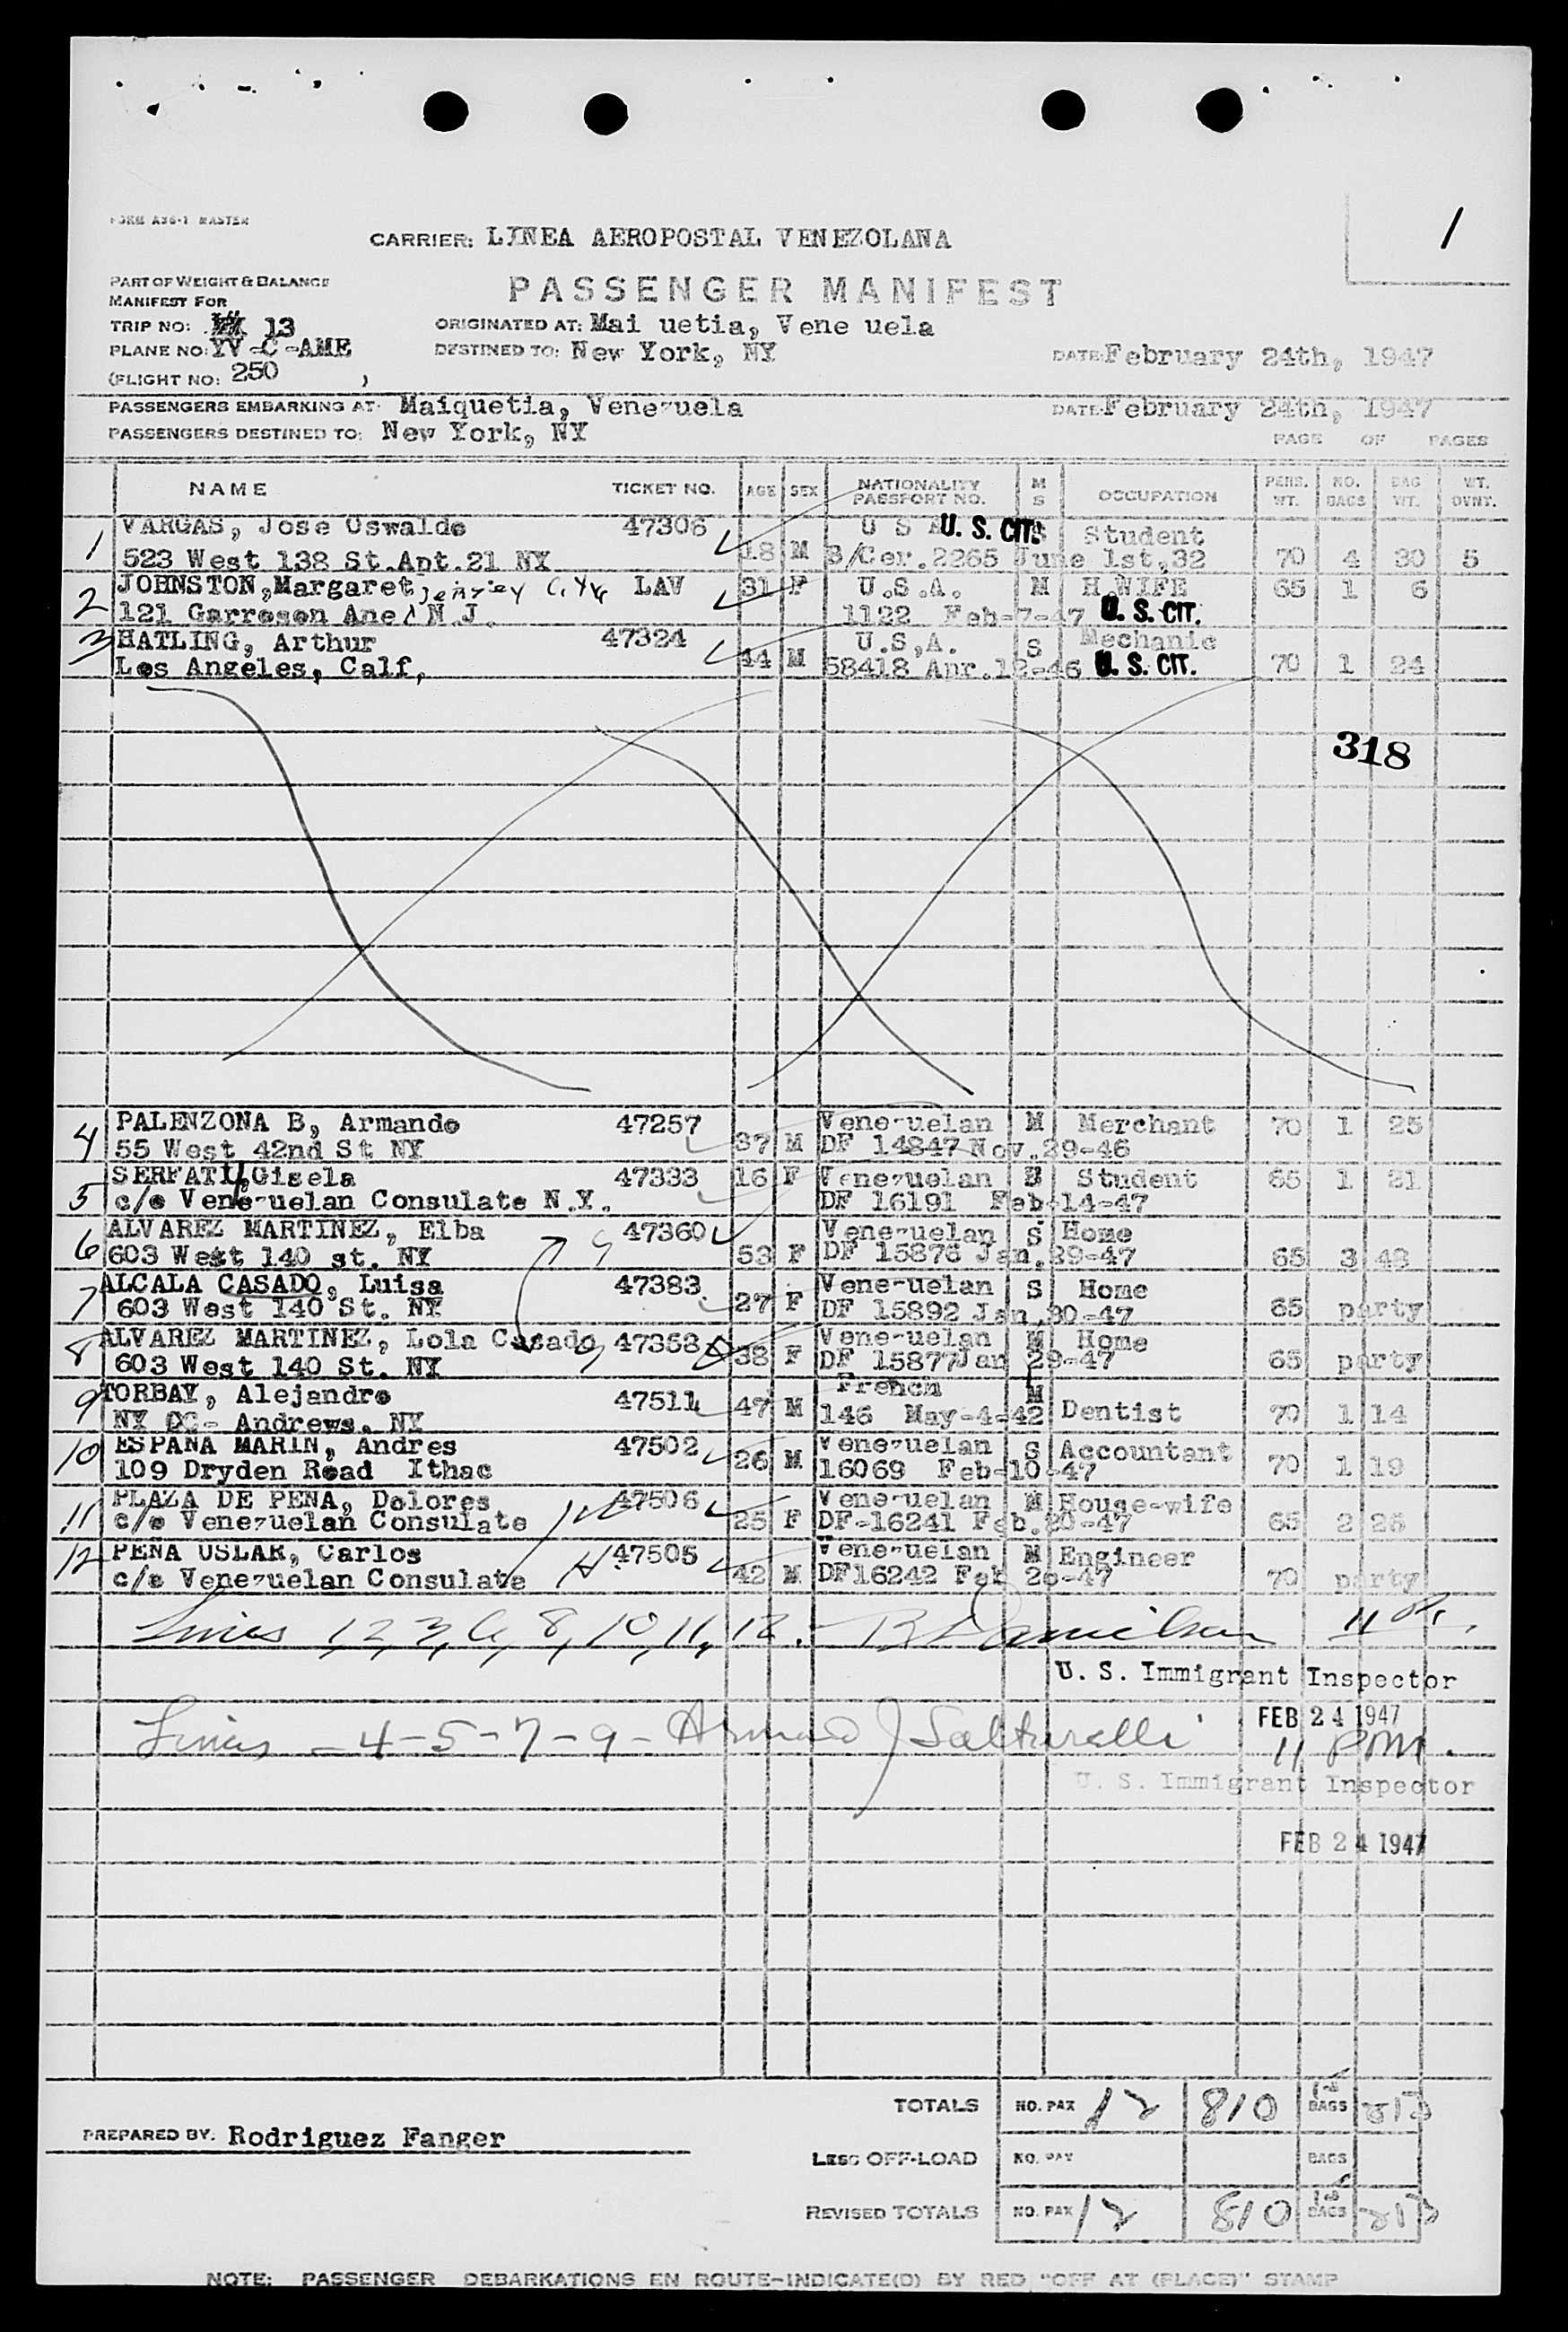 FORM A36-1 MASTER
1
CARRIER: LINEA AEROPOSTAL VENEZOLANA
PART OF WEIGHT & BALANCE
MANIFEST FOR
PASSENGER MANIFEST
TRIP NO: 13
ORIGINATED AT: Mai uetia, Vene uela
PLANE NO: YV-C-AME
DESTINED TO: New York, NY
DATE: February 24th, 1947
(FLIGHT NO: 250 )
PASSENGERS EMBARKING AT: Maiquetia, Venezuela DATE: February 24th, 1947
PASSENGERS DESTINED TO: New York, NY
PAGE OF PAGES
NAME TICKET NO. AGE SEX NATIONALITY PASSPORT NO. M S OCCUPATION PERS. WT. NO. BAGS BAG WT. WT. OVNT.
VARGAS, Jose Oswaldo 47306 U S A U. S. CIT. S Student
1 523 West 138 St.Apt.21 NY 18 M B/Cer.2265 June 1st,32 70 4 30 5
JOHNSTON,Margaret Jersey City LAV 31 F U.S.A. M H.WIFE 65 1 6
2 121 Garreson Ane N J. 1122 Feb-7-47 U. S. CIT.
3 HATLING, Arthur 47324 U.S,A. S Mechanic
Los Angeles, Calf, 44 M 58418 Apr.12-46 U. S. CIT. 70 1 24
318
PALENZONA B, Armando 47257 Venezuelan M Merchant 70 1 25
4 55 West 42nd St NY 37 M DF 14847 Nov.29-46
SERFATY,Gisela 47333 16 F Venezuelan S Student 65 1 21
5 c/o Venezuelan Consulate N.Y. DF 16191 Feb-14-47
ALVAREZ MARTINEZ, Elba 47360 Venezuelan S Home
6 603 West 140 st. NY 53 F DF 15876 Jan.29-47 65 3 48
ALCALA CASADO, Luisa 47383 Venezuelan S Home
7 603 West 140 St. NY 27 F DF 15892 Jan.30-47 65 party
ALVAREZ MARTINEZ, Lola Casado 47358 Venezuelan M Home
8 603 West 140 St. NY 38 F DF 15877 Jan 29-47 65 party
9 TORBAY, Alejandro 47511 47 M French M
NY - Andrews. NY 146 May-4-42 Dentist 70 1 14
ESPANA MARIN, Andres 47502 Venezuelan S Accountant
10 109 Dryden Road Ithac 26 M 16069 Feb-10-47 70 1 19
PLAZA DE PENA, Dolores 47506 Venezuelan M House-wife
11 c/o Venezuelan Consulate 25 F DF-16241 Feb.20-47 65 2 26
12 PENA USLAR, Carlos 47505 Venezuelan M Engineer
c/o Venezuelan Consulate 42 M DF16242 Feb 20-47 70 party
Lines 1, 2, 3, 6, 8, 10, 11, 12.
U. S. Immigrant Inspector
FEB 24 1947
Lines - 4-5-7-9- J Saltarelli 11 P.M.
U. S. Immigrant Inspector
FEB 24 1947
TOTALS NO. PAX 12 810 BAGS 213
PREPARED BY: Rodriguez Fanger
LESS OFF-LOAD NO. PAX BAGS
REVISED TOTALS NO. PAX 12 810 BAGS 213
NOTE: PASSENGER DEBARKATIONS EN ROUTE-INDICATE(D) BY RED "OFF AT (PLACE)" STAMP